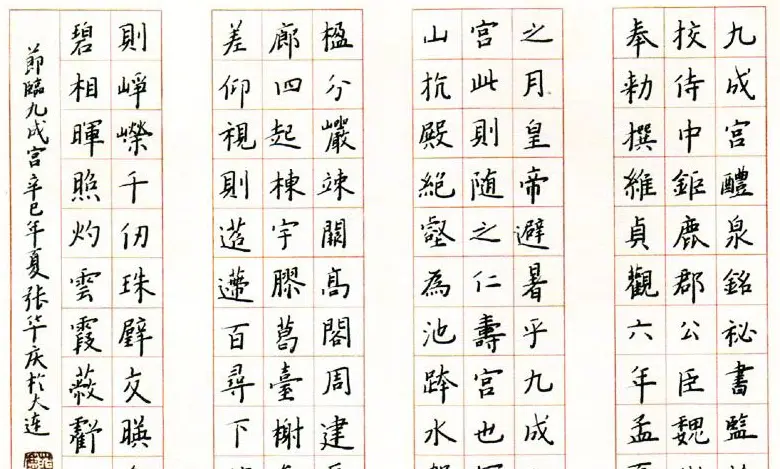 九成宮醴泉銘祕書監
挍侍中鉅鹿郡公臣魏
奉勑撰維貞觀六年孟
之月皇帝避暑乎九成
宮此則随之仁壽宮也
山抗殿絕壑為池跨水
楹分巖竦闕高閣周建
廊四起棟宇膠葛臺榭
差仰視則迢遰百尋下
則崢嶸千仞珠璧交暎
碧相暉照灼雲霞蔽虧
節臨九成宮辛巳年夏張华庆於大连